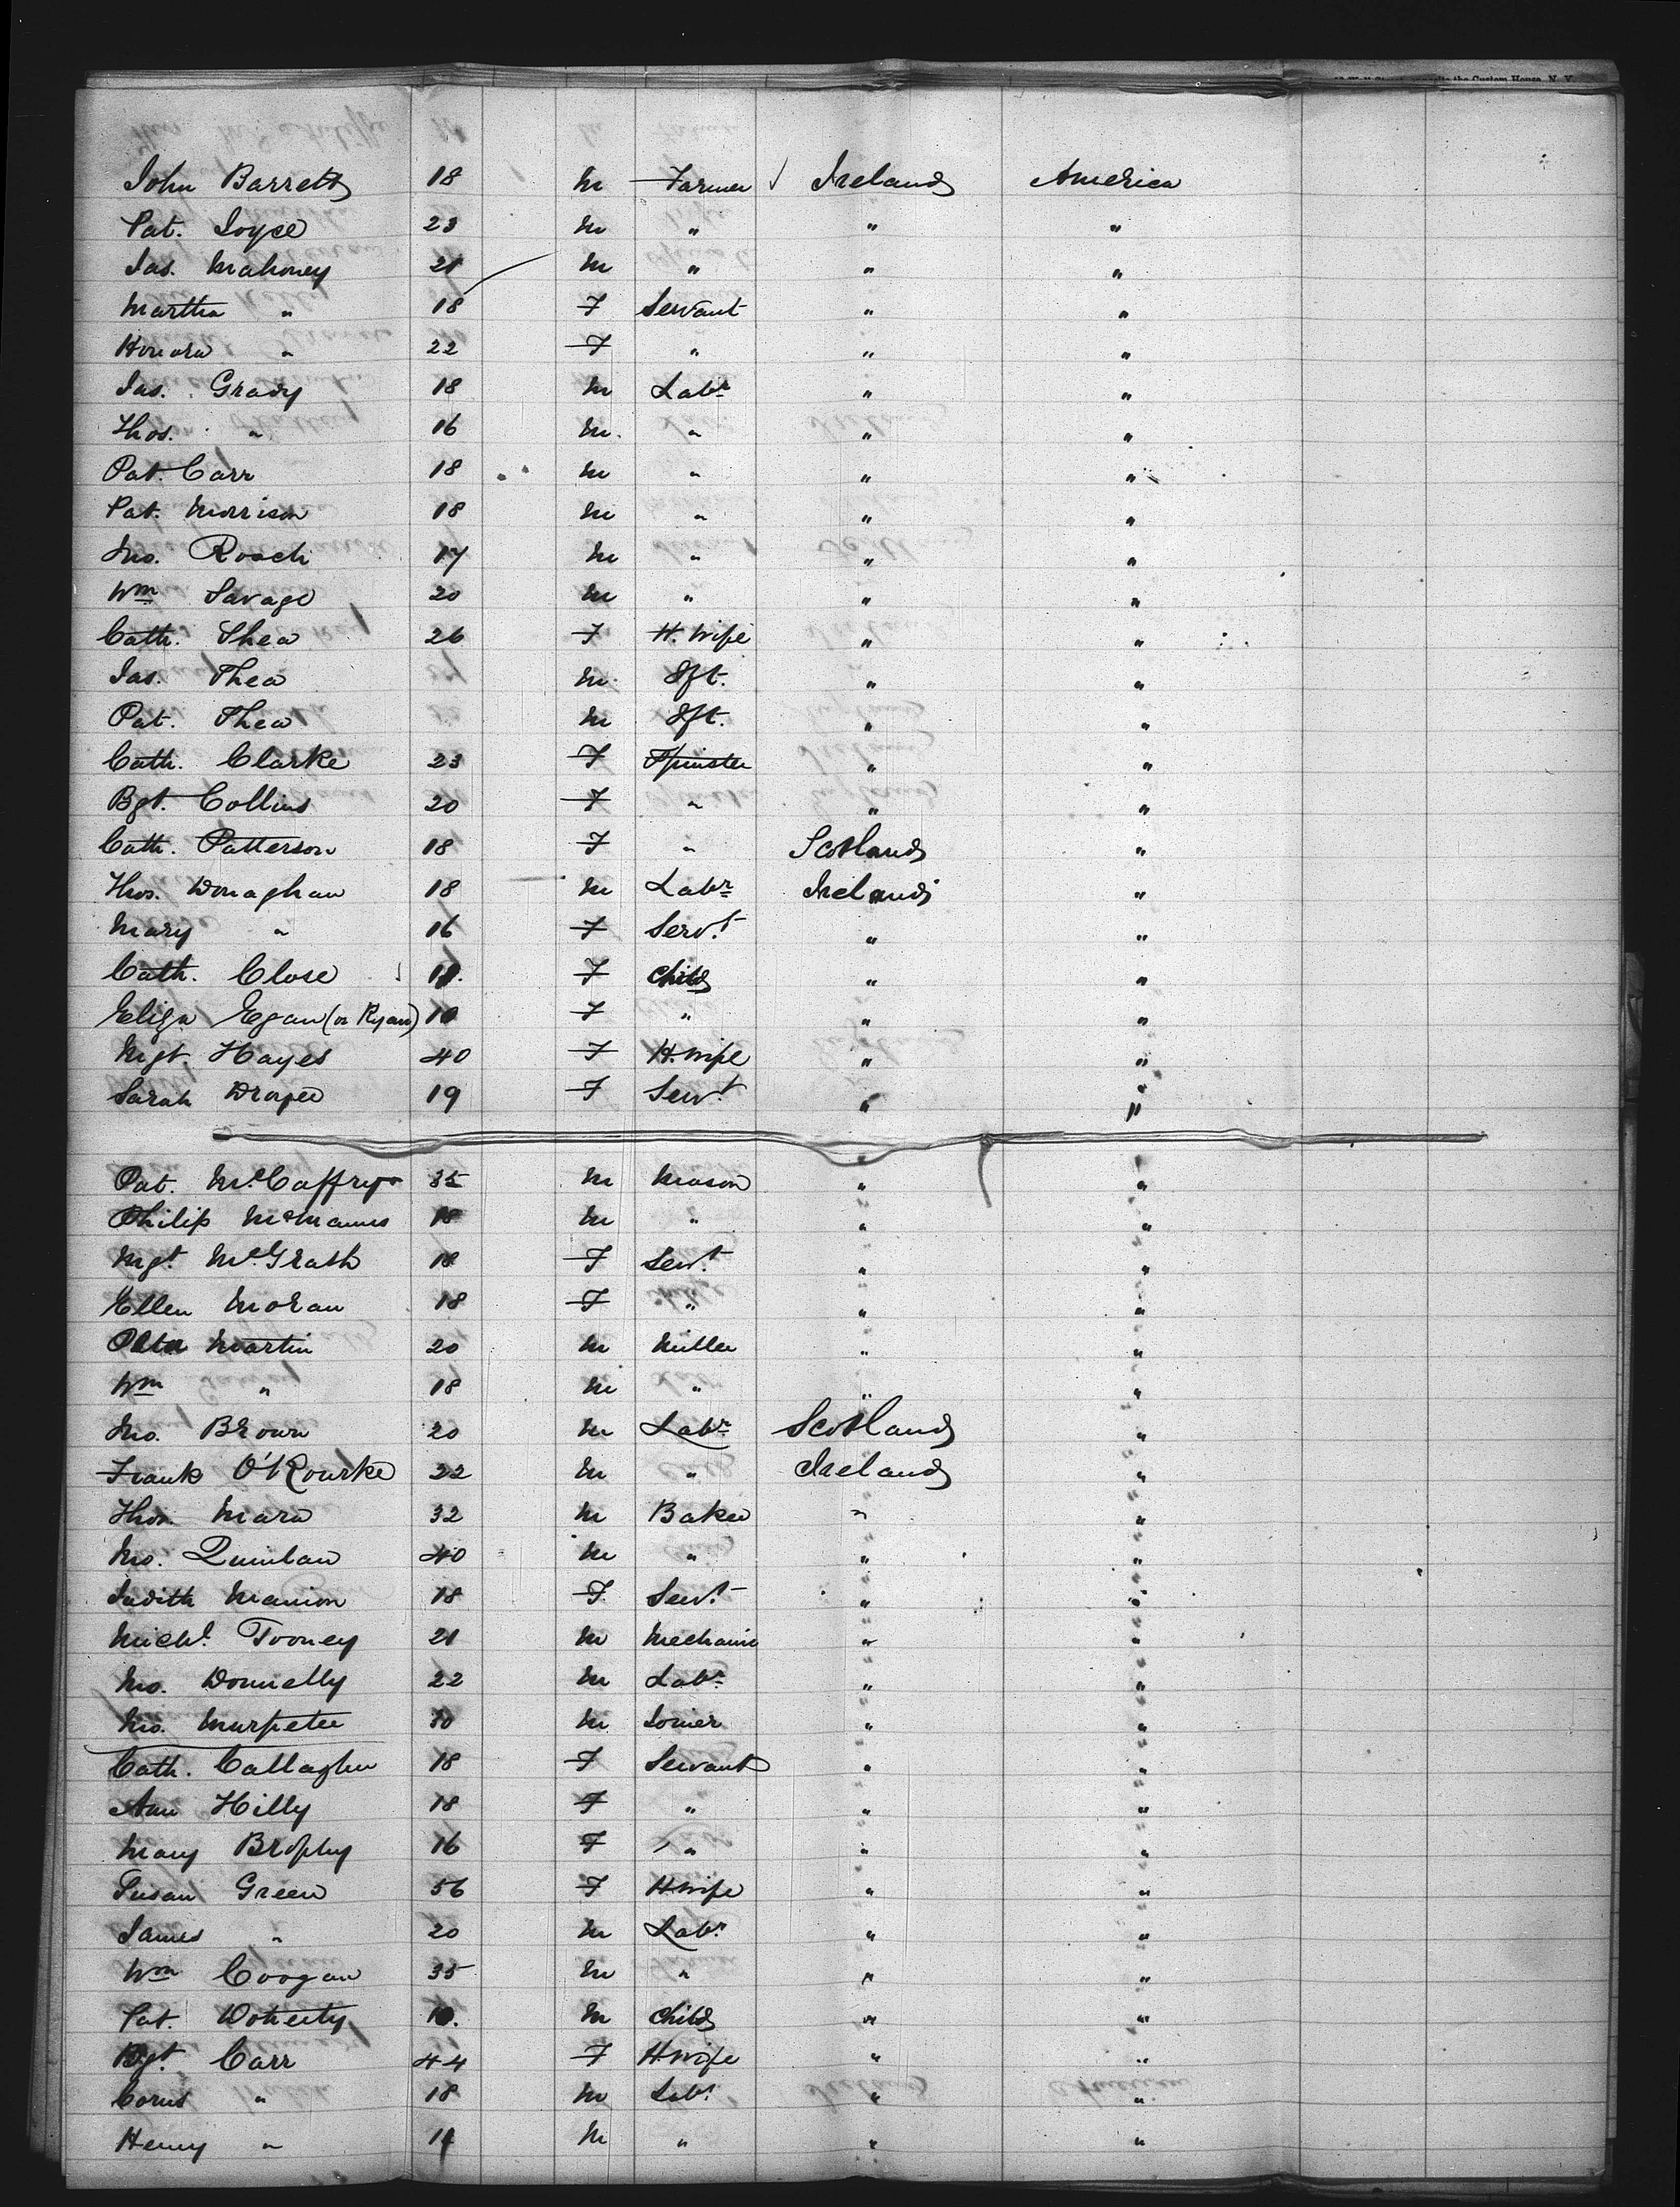 the Custom House, N. Y.
John Barrett 18 M Farmer Ireland America
Pat. Joyce 23 M " " "
Jas. Mahoney 21 M " " "
Martha " 18 F Servant " "
Honora " 22 F " " "
Jas. Grady 18 M Labr " "
Thos. " 16 M " " "
Pat. Carr 18 M " " "
Pat. Morrison 18 M " " "
Jno. Roach 17 M " " "
Wm Savage 20 M " " "
Cath. Shea 26 F H. Wife " "
Jas. Shea M Jft. " "
Pat. Shea M Jft. " "
Cath. Clarke 23 F Spinster " "
Bgt. Collins 20 F " " "
Cath. Patterson 18 F " Scotland "
Thos. Donaghan 18 M Labr Ireland "
Mary " 16 F Servt " "
Cath. Close F Child " "
Eliza Egan (or Ryan) 10 F " " "
Mgt. Hayes 40 F H. Wife " "
Sarah Draper 19 F Servt " "
Pat. McCaffrey 35 M Mason " "
Philip McManus 18 M " " "
Mgt. McGrath 18 F Servt " "
Ellen Moran 18 F " " "
Peter Martin 20 M Miller " "
Wm " 18 M " " "
Jno. Brown 20 M Labr Scotland "
Frank O'Rourke 22 M " Ireland "
Thos. Mara 32 M Baker " "
Jno. Quinlan 40 M " " "
Judith Manion 18 F Servt " "
Michl. Tooney 21 M Mechanic " "
Jno. Donnelly 22 M Labr " "
Jno. 30 M Joiner " "
Cath. Callaghan 18 F Servant " "
Ann Hilly 18 F " " "
Mary Brophy 16 F " " "
Susan Green 56 F H Wife " "
James " 20 M Labr " "
Wm Coogan 35 M " " "
Pat. Doherty 10. M Child " "
Bgt. Carr 44 F H. Wife " "
Corns " 18 M Labr " "
Henry " M " " "